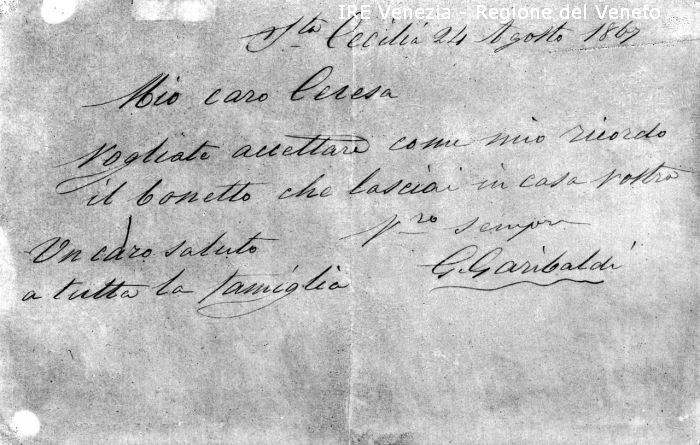 IRE Venezia - Regione del Veneto
Sta Cecilia 24 Agosto 1867
Mio caro Ceresa
Vogliate accettare come mio ricordo
il bonetto che lasciai in casa vostra
Vro sempre
G. Garibaldi
Un caro saluto
a tutta la famiglia